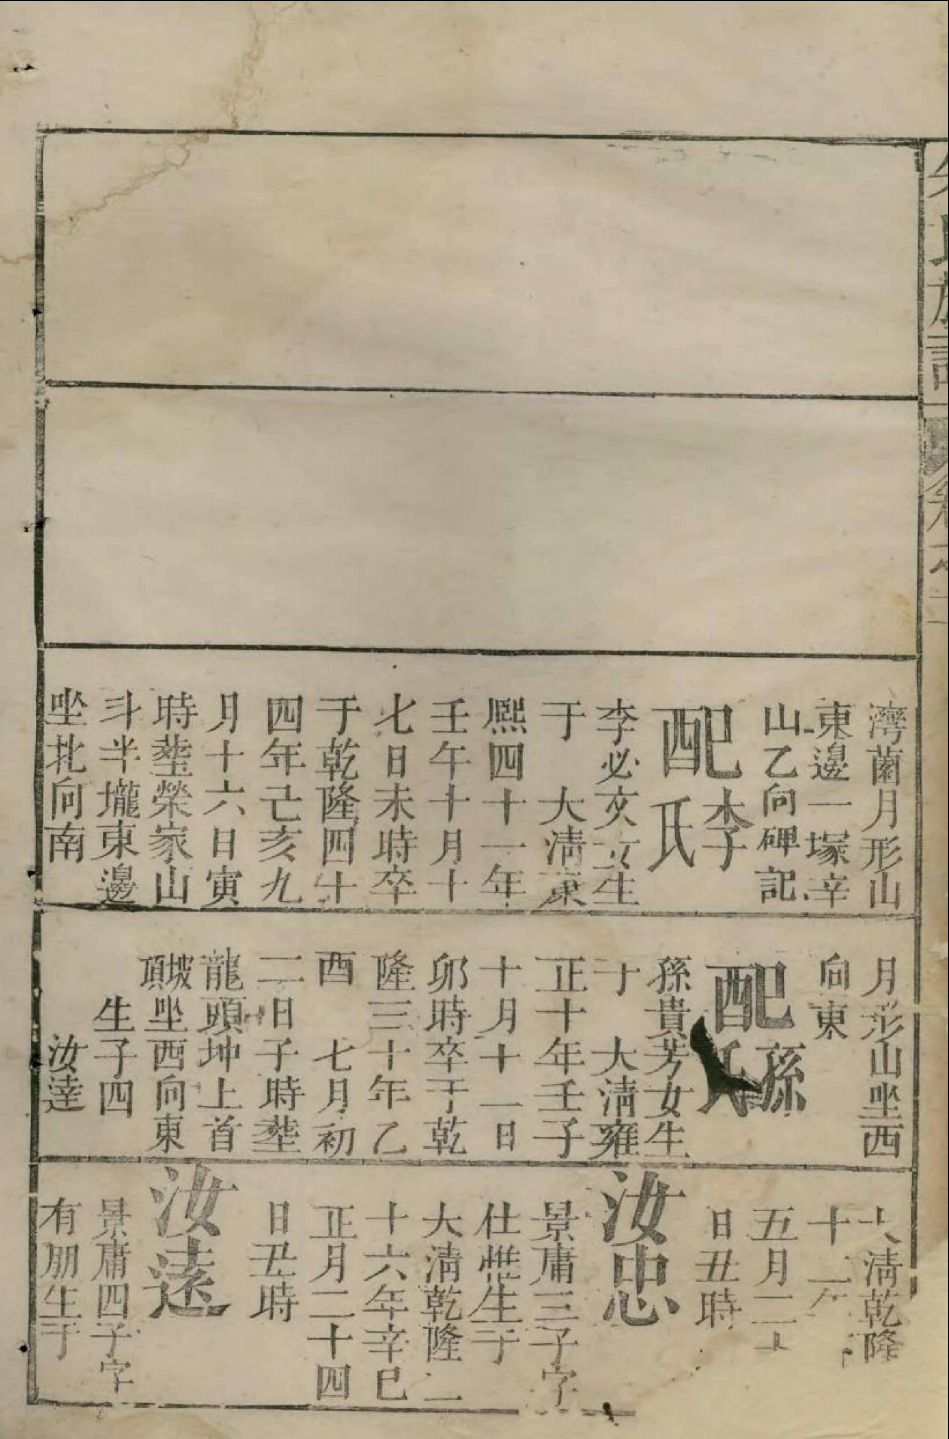 氏族
灣蘭月形山
東邊一塚辛
山乙向碑記
配李氏
李必亥女生
于　大淸康
熙四十一年
壬午十月十
七日未時卒
于乾隆四十
四年己亥九
月十六日寅
時塟榮家山
斗半壠東邊
坐北向南
月形山坐西
向東
配孫氏
孫貴芳女生
于　大淸雍
正十年壬子
十月十一日
卯時卒于乾
隆三十年乙
酉　七月初
二日子時塟
龍頭坤上首
坡頂坐西向東
生子四
汝達
大淸乾隆
十二年
五月二十
日丑時
汝忠
景庸三子字
仕惟生于
大淸乾隆二
十六年辛巳
正月二十四
日丑時
汝遠
景庸四子字
有朋生于